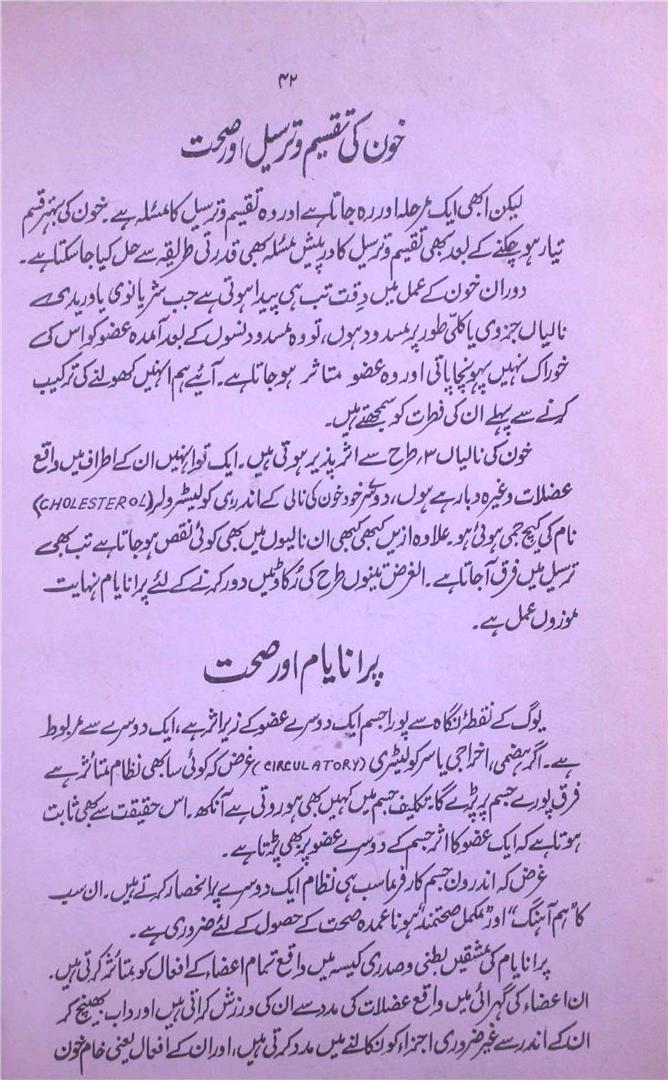 ۴۲
خون کی تقسیم و ترسیل اور صحت
لیکن ابھی ایک مرحلہ اور رہ جاتا ہے اور وہ تقسیم و ترسیل کا مسئلہ ہے۔ خون کی بہتر قسم
تیار ہو چکنے کے بعد بھی تقسیم و ترسیل کا درپیش مسئلہ بھی قدرتی طریقہ سے حل کیا جا سکتا ہے۔
دوران خون کے عمل میں دِقت تب ہی پیدا ہوتی ہے جب شریانوی یا وریدی
نالیاں جزوی یا کلّی طور پر مسدود ہوں، تو وہ مسدود نسوں کے بعد آمدہ عضو کو اس کی
خوراک نہیں پہونچا پاتی اور وہ عضو متاثر ہو جاتا ہے۔ آئیے ہم انہیں کھولنے کی ترکیب
کرنے سے پہلے ان کی فطرت کو سمجھتے ہیں۔
خون کی نالیاں ۳ طرح سے اثر پذیر ہوتی ہیں۔ ایک تو انہیں ان کے اطراف میں واقع
عضلات وغیرہ دبا رہے ہوں، دوسرے خود خون کی نالی کے اندر ہی کولیسٹرولر (CHOLESTEROL)
نام کی کیچ جمی ہوئی ہو۔ علاوہ ازیں کبھی کبھی ان نالیوں میں بھی کوئی نقص ہو جاتا ہے تب بھی
ترسیل میں فرق آ جاتا ہے۔ الغرض تینوں طرح کی رُکاوٹیں دور کرنے کے لئے پرانایام نہایت
موزوں عمل ہے۔
پرانایام اور صحت
یوگ کے نقطۂ نگاہ سے پورا جسم ایک دوسرے عضو کے زیر اثر ہے، ایک دوسرے سے مربوط
ہے۔ اگر ہضمی، اخراجی یا سرکولیٹری (CIRCULATORY) غرض کہ کوئی سا بھی نظام متأثر ہے
فرق پورے جسم پر پڑے گا۔ تکلیف جسم میں کہیں بھی ہو روتی ہے آنکھ۔ اس حقیقت سے بھی ثابت
ہوتا ہے کہ ایک عضو کا اثر جسم کے دوسرے عضو پر بھی پڑتا ہے۔
غرض کہ اندرون جسم کارفرما سب ہی نظام ایک دوسرے پر انحصار کرتے ہیں۔ ان سب
کا "ہم آہنگ" اور "مکمل صحتمند" ہونا عمدہ صحت کے حصول کے لئے ضروری ہے۔
پرانایام کی مشقیں بطنی و صدری کیسہ میں واقع تمام اعضاء کے افعال کو متأثر کرتی ہیں۔
ان اعضاء کی گہرائی میں واقع عضلات کی مدد سے ان کی ورزش کراتی ہیں اور داب بھینچ کر
ان کے اندر سے غیر ضروری اجزاء کو نکالنے میں مدد کرتی ہیں، اور ان کے افعال یعنی خام خون